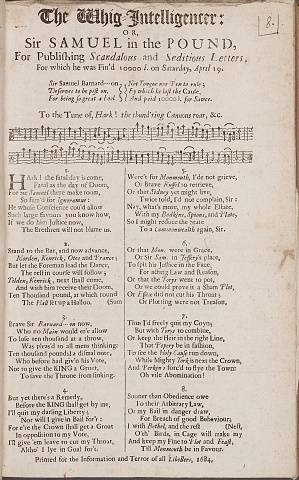 8.
The Whig-Intelligencer:
OR,
Sir SAMUEL in the POUND,
For Publishing Scandalous and Seditious Letters,
For which he was Fin'd 10000 l. on Saturday, April 19.
Sir Samuel Barnard—on;
Deserves to be pist on,
For being so great a Fool
Not Tongue nor Pen to rule;
By which he lost the Cause,
And paid 10000 l. for Sauce.
To the Tune of, Hark! the thund'ring Canons roar, &c.
1.
HArk! the fatal day is come,
Fatal as the day of Doom,
For Sir Samuel there make room,
So fam'd for Ignoramus:
He whose Conscience cou'd allow
Such large favours you know how,
If we do him justice now,
The Brethren will not blame us.
2.
Stand to the Bar, and now advance,
Harlem, Kenrick, Otes and Prance;
But let the Foreman lead the Dance,
The rest in course will follow;
Tilden, Kenrick, next shall come,
And with him receive their Doom,
Ten Thousand pound, at which round Sum
The Hall set up a Hallow.
3.
Brave Sir Barnard—on now,
Who no Favour wou'd e're allow
To lose ten thousand at a throw,
Was pleas'd to all mens thinking:
Ten thousand pound a dismal note,
Who before had giv'n his Vote,
Not to give the KING a Groat,
To save the Throne from sinking.
4.
But yet there's a Remedy,
Before the KING shall get by me,
I'll quit my darling Liberty;
Nor will I give in Bail for't:
For e're the Crown shall get a Groat
In opposition to my Vote,
I'll give 'em leave to cut my Throat,
Altho' I lye in Goal for't.
5.
Were't for Monmouth, I'd not grieve,
Or Brave Russel to retrieve,
Or that Sidney yet might live,
Twice told, I'd not complain, Sir:
Nay, what's more, my whole Estate,
With my Bodkins, Spoons, and Plate,
So I might reduce the State
To a Commonwealth again, Sir.
6.
Or that Mon. were in Grace,
Or Sir Sam. in Jeffery's place,
To spit his Justice in the Face,
For acting Law and Reason,
Or that the Torys went to pot,
Or we could prove it a Sham Plot,
Or Essex did not cut his Throat;
Or Plotting were not Treason.
7.
Thus I'd freely quit my Coyn;
But with Torys to combine,
Or keep the Heir in the right Line,
That Popery be in fashion;
To see the Holy Cause run down,
While Mighty York is next the Crown,
And Perkin's forc'd to flye the Town:
Oh vile Abomination!
8.
Sooner than Obedience owe
To their Arbitrary Law,
Or my Bail in danger draw,
For Breach of good Behaviour;
I with Bethel, and the rest
O'th' Birds, in Cage will make my Nest,
And keep my Fine to Plot and Feast,
Till Monmouth be in Favour.
Printed for the Information and Terror of all Libellers, 1684.